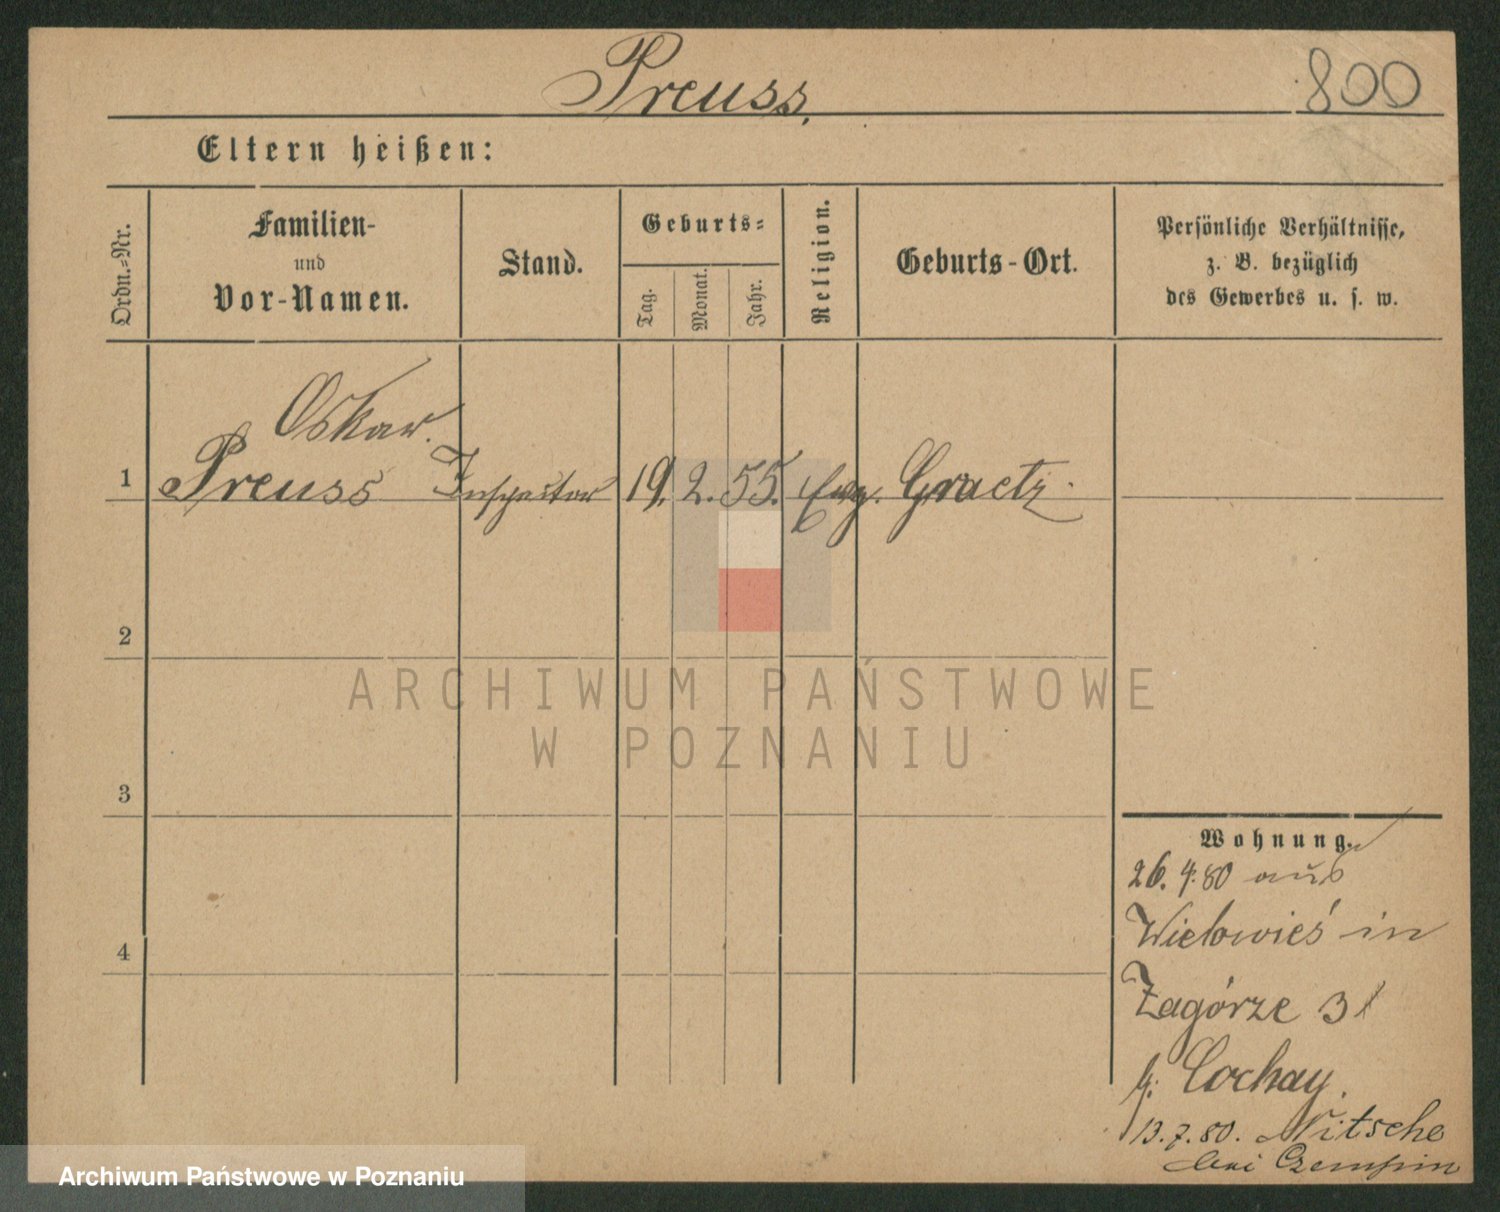 Preuss.
800
Eltern heißen:
Ordn.-Nr.
Familien-
und
Vor-Namen.
Stand.
Geburts-
Tag.
Monat.
Jahr.
Religion.
Geburts-Ort.
Persönliche Verhältnisse,
z. B. bezüglich
des Gewerbes u. s. w.
Oskar.
1 Preuss Inspector 19. 2. 55. Evg. Graetz.
2
3
4
Wohnung.
26. 4. 80 aus
Wielowieś in
Zagórze 3
b: Cochay.
13. 7. 80. Nitsche
bei Czempin
ARCHIWUM PAŃSTWOWE
W POZNANIU
Archiwum Państwowe w Poznaniu